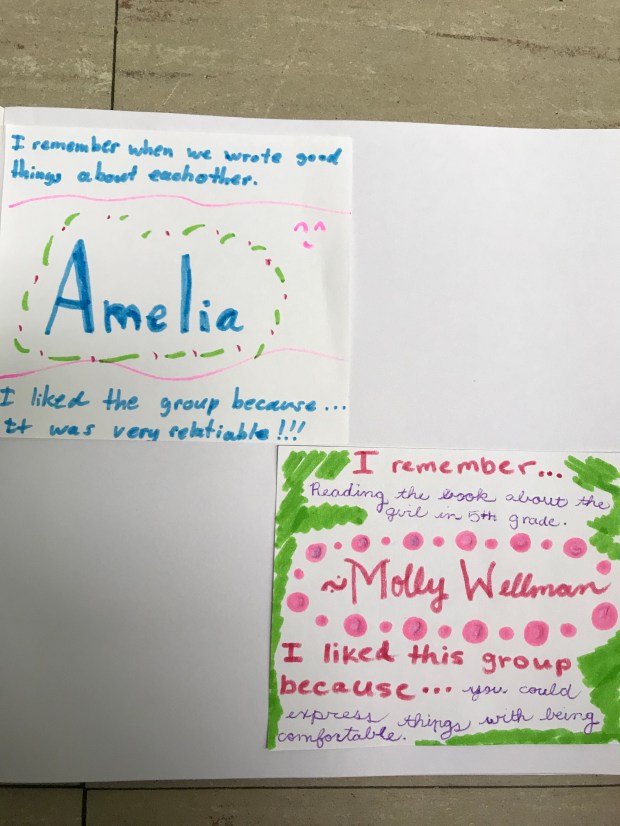 I remember when we wrote good
things about eachother.
Amelia
I liked the group because...
It was very relatiable!!!
I remember...
Reading the book about the
gvil in 5th grade.
~Molly Wellman
I liked this group
because... you could
express things with being
comfortable.